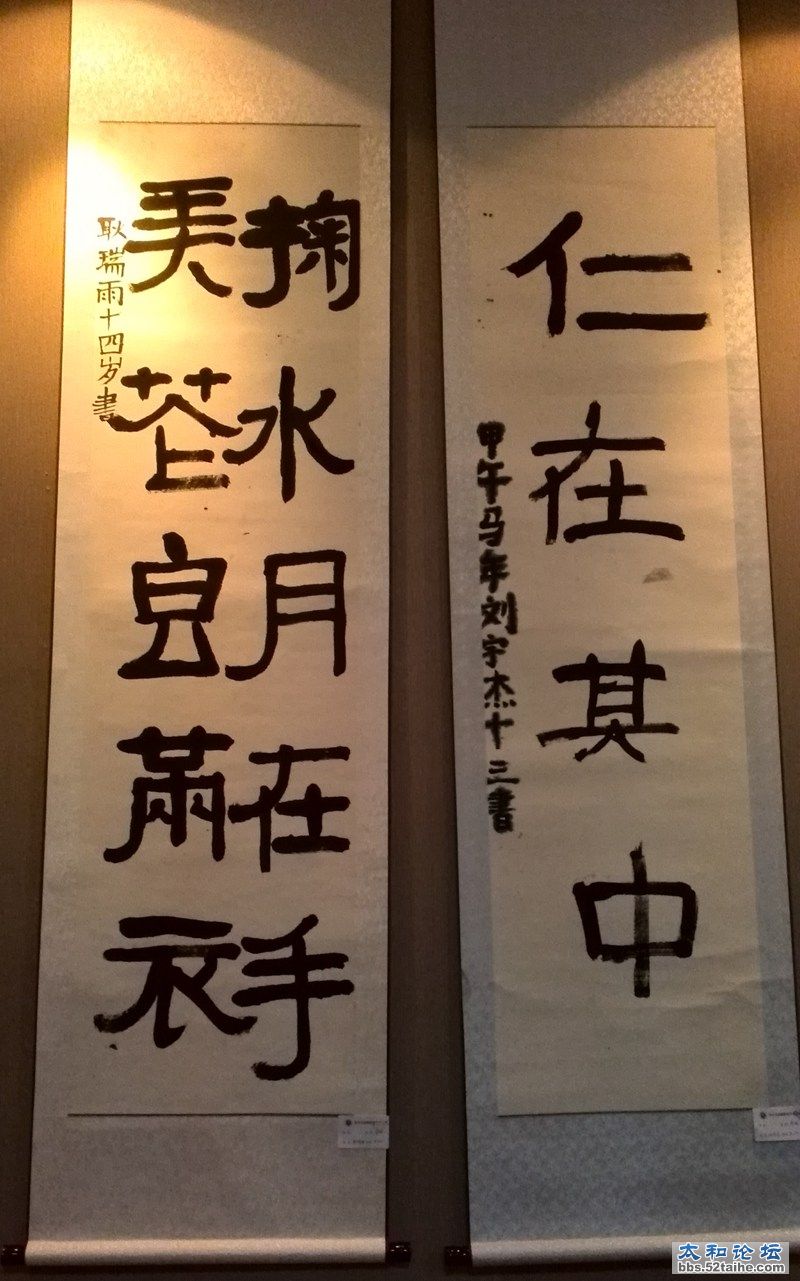 仁在其中
甲午马年刘宇杰十三書
掬水月在手
弄花香㒼衣
耿瑞雨十四岁書
太和论坛
bbs.52taihe.com